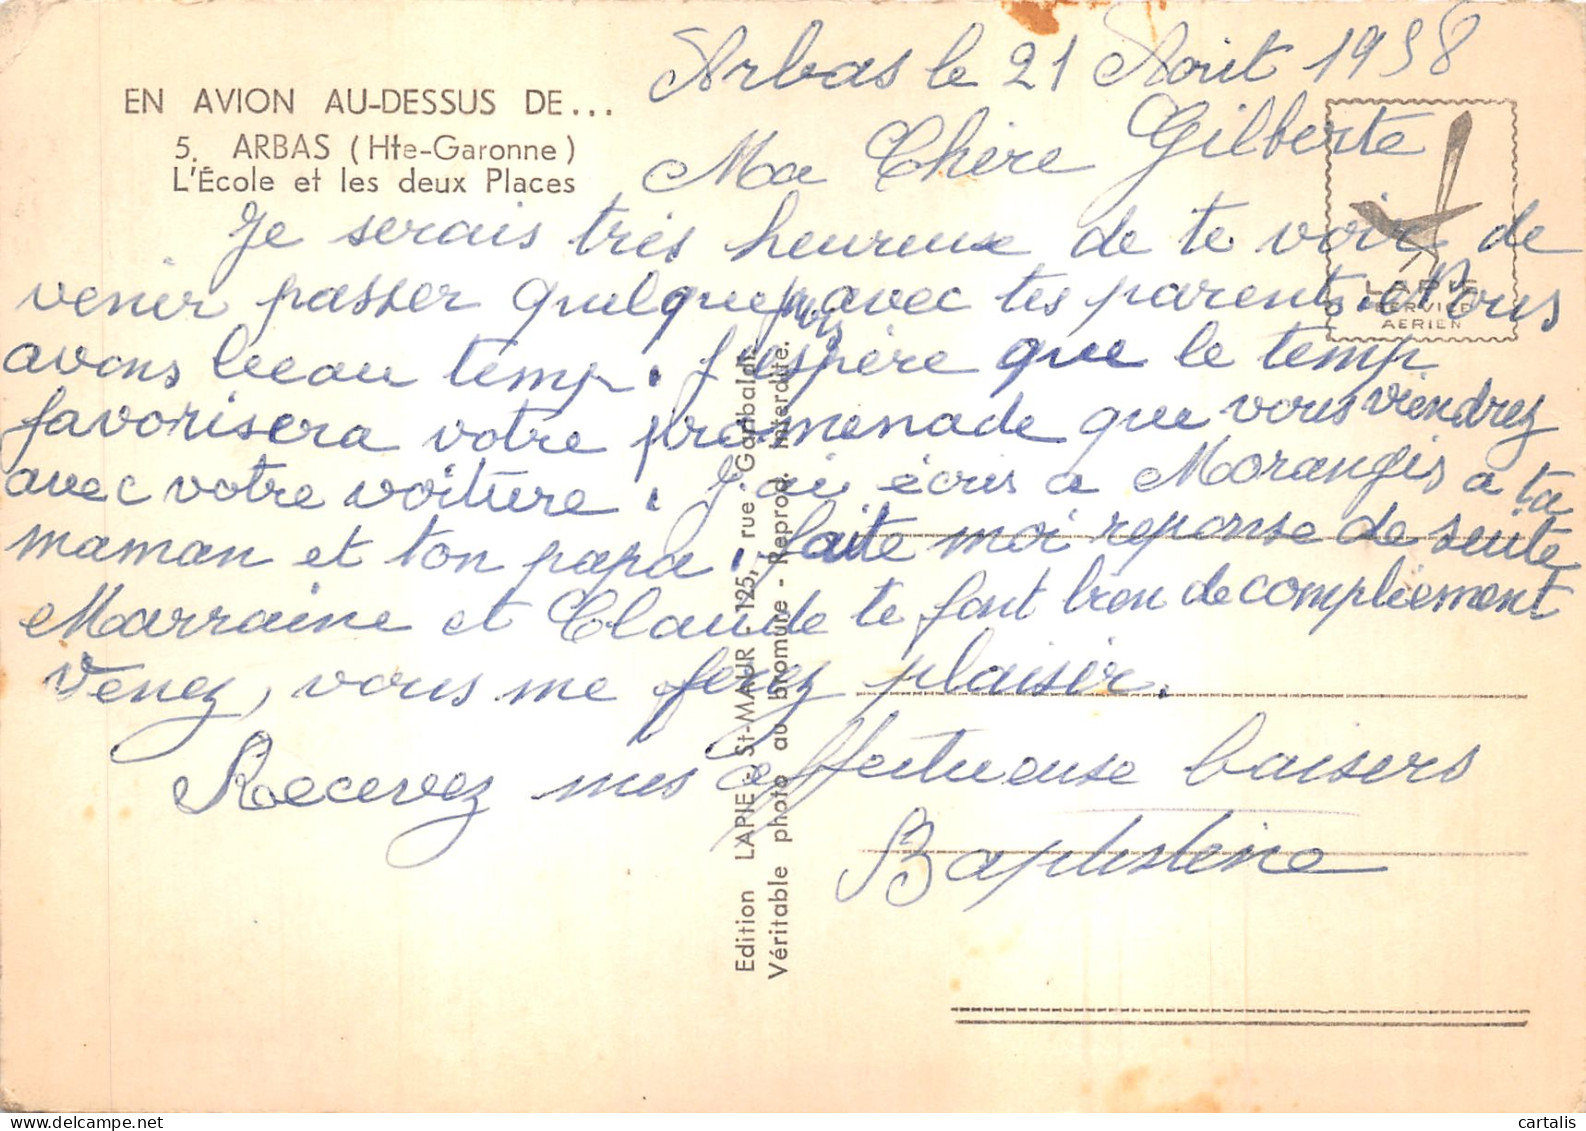 EN AVION AU-DESSUS DE...
5. ARBAS (Hte-Garonne)
L'École et les deux Places
Arbas le 21 Août 1958
Ma Chère Gilberte
Je serais très heureuse de te voir de
venir passer quelque avec tes parents. Nous
avons beau temp. J'espère que le temp
favorisera votre promenade que vous viendrez
avec votre voiture. J'ai écris a Morangis a ta
maman et ton papa. faite moi reponse de suite
Marraine et Claude te font bien de compliement
Venez, vous me ferez plaisir.
Recevez mes affectueuse baisers
Baptistine
LAPIE
SERVICE
AERIEN
Edition LAPIE - St-MAUR - 125, rue Garibaldi.
Véritable photo au bromure - Reprod. interdite.
cartalis